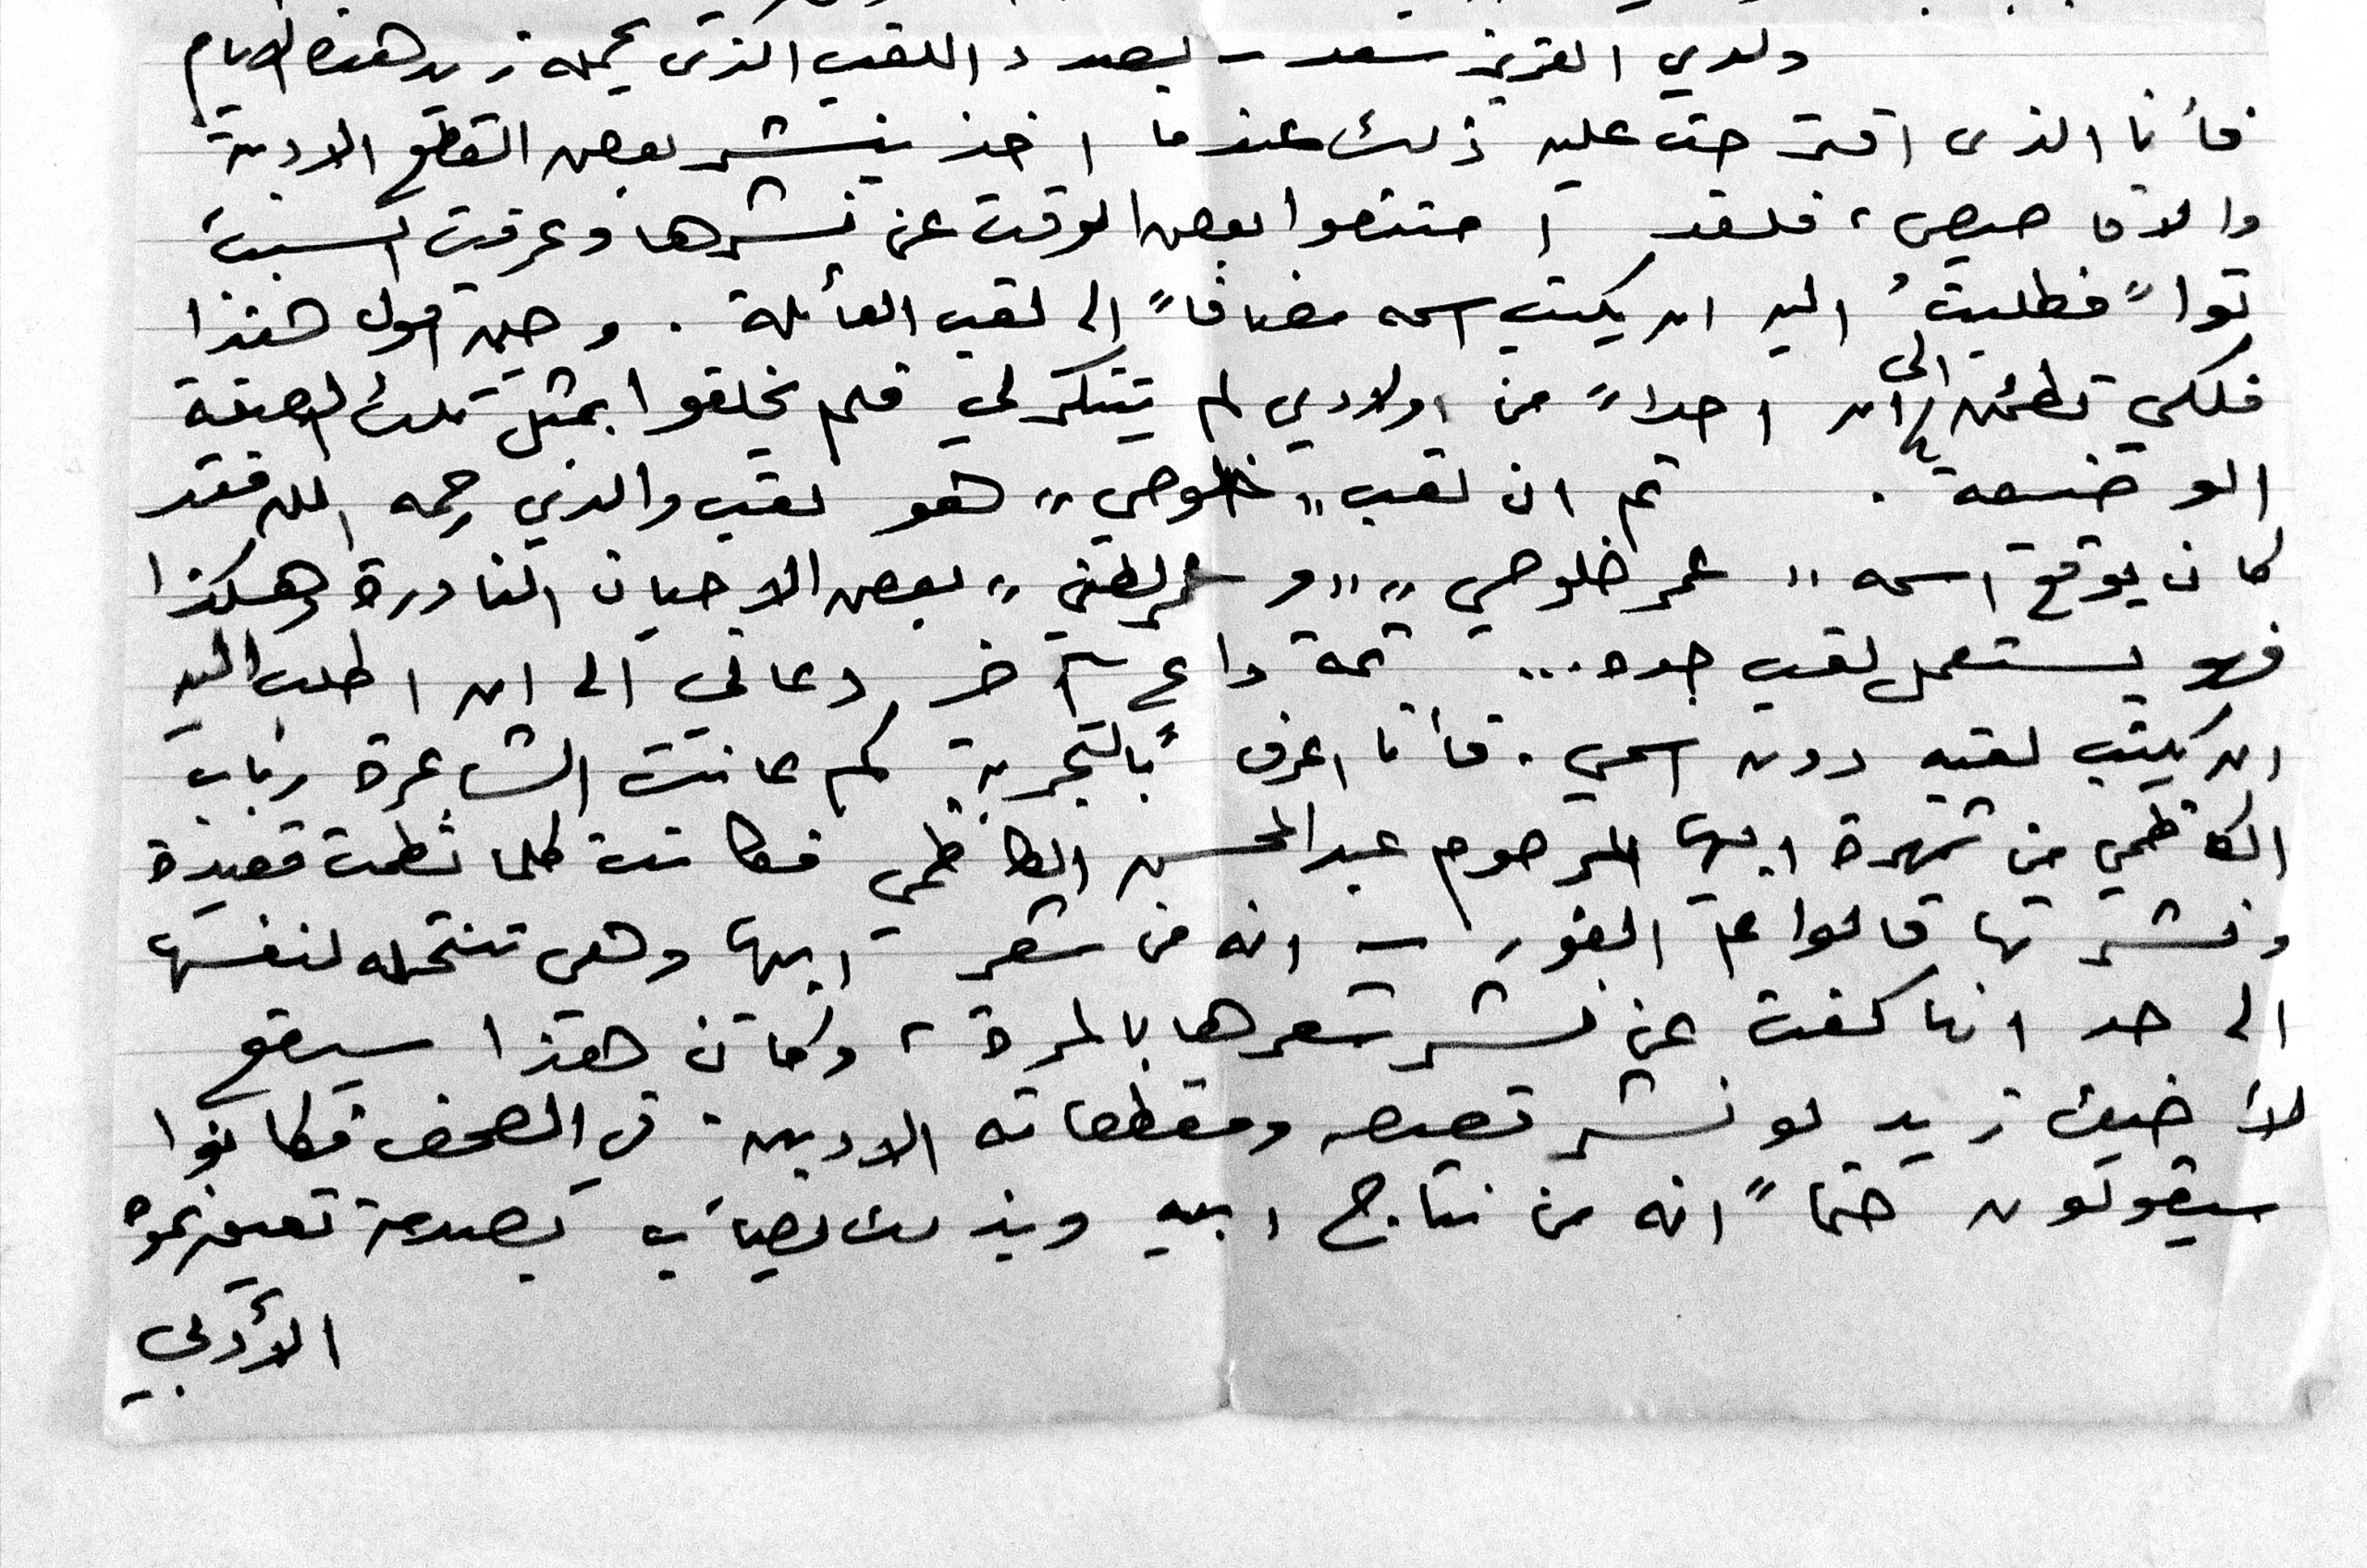 ولدي العزيز سعد - بصدد اللقب الذى يحمله زيد هذه الايام
فأنا الذى اقترحت عليه ذلك عندما اخذ ينشر بعض القطع الادبية
والاقاصيص، فلقد امتنعوا بعض الوقت عن نشرها وعرفت السبب
تواً فطلبتُ اليه ان يكتب اسمه مضافاً الى لقب العائلة. وحين اقول هذا
فلكي تطمئن الى ان احداً من اولادي لم يتنكر لي فلم يخلقوا بمثل تلك الصفة
الوضيعة. ثم ان لقب "خلوصي" هو لقب والدي رحمه الله فقد
كان يوقع اسمه "عمر خلوصي" و "عمر لطفي" بعض الاحيان النادرة وهكذا
فهو يستعمل لقب جده... ثمة داع آخر دعاني الى ان اطلب اليه
ان يكتب لقبه دون اسمي. فأنا اعرف بالتجربة كم عانت الشاعرة رباب
الكاظمي من شهرة ابيها المرحوم عبد المحسن الكاظمي فكانت كلما نظمت قصيدة
ونشرتها قالوا على الفور - انه من شعر ابيها وهى تنتحله لنفسها
الى حد انها كفت عن نشر شعرها بالمرة، وكان هذا سيقع
لأخيك زيد لو نشر قصصه ومقطعاته الادبية في الصحف فكانوا
سيقولون حتماً انه من نتاج ابيه وبذلك يصاب بصدمة تعيق نموه
الأدبي